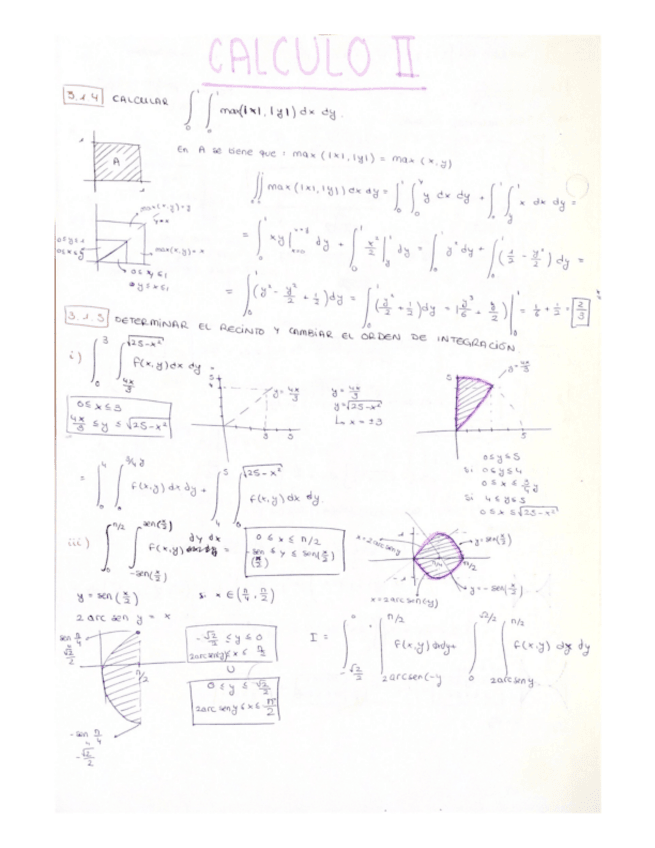 CALCULO II
3.1.4 CALCULAR ∫₀¹ ∫₀¹ max(|x|, |y|) dx dy.
En A se tiene que: max(|x|, |y|) = max(x, y)
A
∬ max(|x|, |y|) dx dy = ∫₀¹ ∫₀^y y dx dy + ∫₀¹ ∫_y^1 x dx dy =
max(x,y)=y
y=x
max(x,y)=x
0≤y≤1
0≤x≤y
0≤y≤1
y≤x≤1
= ∫₀¹ xy |_{x=0}^{x=y} dy + ∫₀¹ x²/2 |_y^1 dy = ∫₀¹ y² dy + ∫₀¹ (1/2 - y²/2) dy =
= ∫₀¹ (y² - y²/2 + 1/2) dy = ∫₀¹ (y²/2 + 1/2) dy = | y³/6 + y/2 |₀¹ = 1/6 + 1/2 = 2/3
3.1.5 DETERMINAR EL RECINTO Y CAMBIAR EL ORDEN DE INTEGRACIÓN.
i) ∫₀³ ∫_{4x/3}^{√25-x²} f(x,y) dx dy
0≤x≤3
4x/3 ≤ y ≤ √25-x²
y=4x/3
y=4x/3
y=√25-x²
↳ x=±3
y=4x/3
0≤y≤5
si 0≤y≤4
0≤x≤3/4 y
si 4≤y≤5
0≤x≤√25-x²
= ∫₀⁴ ∫₀^{3/4 y} f(x,y) dx dy + ∫₄⁵ ∫₀^{√25-x²} f(x,y) dx dy.
iii) ∫₀^{π/2} ∫_{-sen(x/2)}^{sen(x/2)} f(x,y) dy dx =
0 ≤ x ≤ π/2
-sen(x/2) ≤ y ≤ sen(x/2)
x=2arcsen y
y=sen(x/2)
π/2
y=-sen(x/2)
x=2arcsen(y)
y = sen(x/2) si x ∈ (π/4, π/2)
2 arc sen y = x
sen π/4
√2/2
π/2
-sen π/4
-√2/2
-√2/2 ≤ y ≤ 0
2arcsen y ≤ x ≤ π/2
U
0 ≤ y ≤ √2/2
2arc sen y ≤ x ≤ π/2
I = ∫_{-√2/2}^0 ∫_{2arcsen(-y}^{π/2} f(x,y) dxdy + ∫₀^{√2/2} ∫_{2arcsen y}^{π/2} f(x,y) dx dy